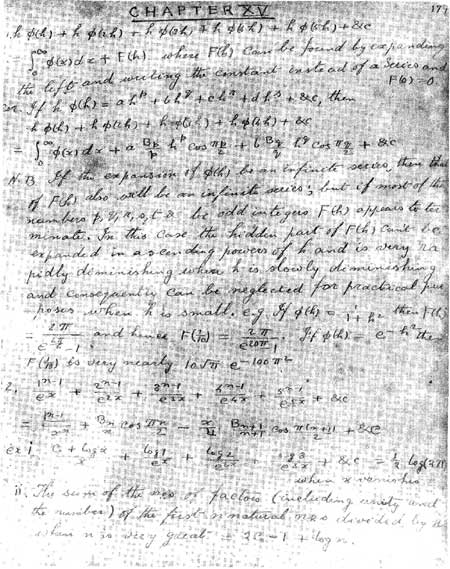 CHAPTER XV
177
1. h φ(h) + h φ(2h) + h φ(3h) + h φ(4h) + h φ(5h) + &c
= ∫₀^∞ φ(x) dx + F(h) where F(h) can be found by expanding
the left and writing the constant instead of a series and
F(0) = 0
Cor. If h φ(h) = a h^p + b h^q + c h^r + d h^s + &c, then
h φ(h) + h φ(2h) + h φ(3h) + h φ(4h) + &c
= ∫₀^∞ φ(x) dx + a B_p/p h^p cos πp/2 + b B_q/q h^q cos πq/2 + &c
N.B. If the expansion of φ(h) be an infinite series, then that
of F(h) also will be an infinite series; but if most of the
numbers p, q, r, s, t &c be odd integers F(h) appears to ter
minate. In this case the hidden part of F(h) can't be
expanded in ascending powers of h and is very ra
pidly diminishing when h is slowly diminishing
and consequently can be neglected for practical pur
poses when h is small. e.g. If φ(h) = 1/(1+h²) then F(h)
and hence F(1/10) = 2π/(e^{20π} - 1). If φ(h) = e^{-h²} then
F(1/10) is very nearly 10√π e^{-100π²}
2. 1^{n-1}/e^x + 2^{n-1}/e^{2x} + 3^{n-1}/e^{3x} + 4^{n-1}/e^{4x} + 5^{n-1}/e^{5x} + &c
+ B_n/n cos πn/2 - x/1! B_{n+1}/(n+1) cos π(n+1)/2 + &c
ex i. + log 1/e^x + log 2/e^{2x} + log 3/e^{3x} + &c = ½ log(2π)
when x vanishes
ii. The sum of the nos of factors (including unity and
the number) of the first n natural nos divided by n
when n is very great = 2C - 1 + log n.